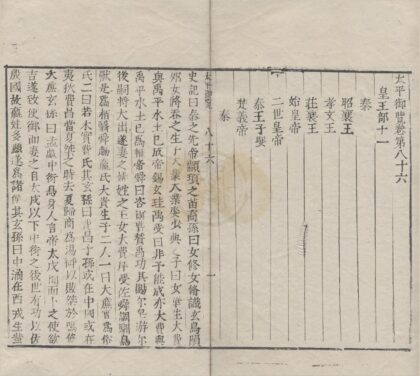 太平御覽卷第八十六
皇王部十一
秦
昭襄王
孝文王
莊襄王
始皇帝
二世皇帝
秦王子嬰
楚義帝
秦
八十六
一
史記曰秦之先帝顓頊之苗裔孫曰女修女脩織玄鳥隕
卵女脩吞之生子大業大業娶少典之子曰女華生大費
與禹平水土已成帝錫玄珪禹受曰非予能成亦大費與
禹平水土已爲輔帝舜曰咨爾費贊禹功其賜爾皂游爾
後嗣將大出遂妻之姚姓之玉女大費拜受佐舜調馴鳥
獸是爲栢翳舜賜嬴氏大費生子二人一曰大廉實鳥俗
氏二曰若木實費氏其玄孫曰費昌子孫或在中國或在
夷狄費昌當夏桀之時去夏歸商爲湯御以敗桀於鳴條
大廉玄孫曰孟戲中衍鳥身人言帝太戊聞而卜之使御
吉遂致使御而妻之自太戊以下中衍之後世有功以佐
殷國故嬴姓多顯遂爲諸侯其玄孫曰中潏在西戎生蜚